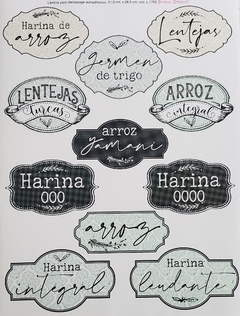 Harina de
arroz
Lentejas
Germen
de trigo
LENTEJAS
Turcas
ARROZ
integral
arroz
Yamaní
Harina
000
Harina
0000
arroz
Harina
integral
Harina
leudante